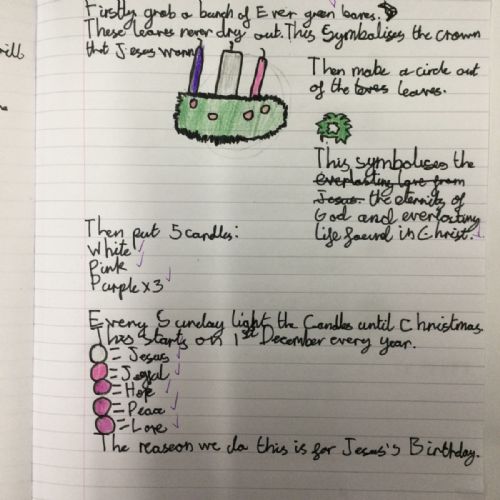 Firstly grab a bunch of Ever green leaves.
These leaves never dry out. This Symbolises the crown
that Jesus worn
Then make a circle out
of the loves leaves.
This symbolises the
everlasting love from
Jesus. the eternity of
God and everlasting
life found in Christ.
Then put 5 candles:
White
Pink
Purple x3
Every Sunday light the Candles until Christmas
This starts on 1st December every year.
= Jesus
= Joyal
= Hope
= Peace
= Love
The reaseon we do this is for Jesus's Birthday.